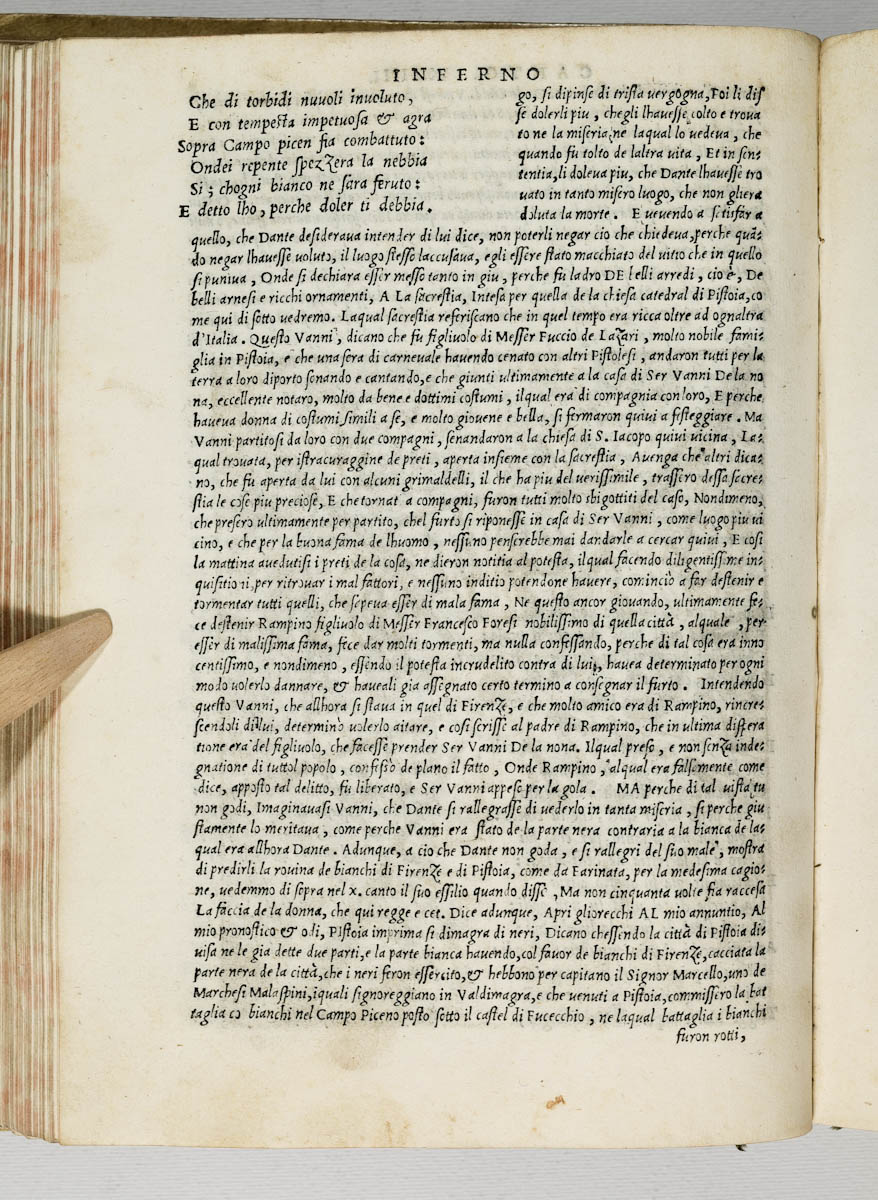 INFERNO
Che di torbidi nuuoli inuoluto,
E con tempesta impetuosa & agra
Sopra Campo picen fia combattuto:
Ondei repente spezzera la nebbia
Si; chogni bianco ne sara feruto:
E detto lho, perche doler ti debbia.
go, si dipinse di trista uergogna, Poi li dis
se dolerli piu, chegli lhauesse colto e troua
to ne la miseria, ne laqual lo uedeua, che
quando fu tolto de laltra uita, Et in sen:
tentia, li doleua piu, che Dante lhauesse tro
uato in tanto misero luogo, che non gliera
doluta la morte. E uenendo a satisfar a
quello, che Dante desideraua intender di lui dice, non poterli negar cio che chiedeua, perche quã
do negar lhauesse uoluto, il luogo stesso laccusaua, egli essere stato macchiato del uitio che in quello
si puniua, Onde si dechiara esser messo tanto in giu, perche fu ladro DE belli arredi, cio è, De
belli arnesi e ricchi ornamenti, A La sacrestia, Intesa per quella de la chiesa catedral di Pistoia, co
me qui di sotto uedremo. Laqual sacrestia referiscano che in quel tempo era ricca oltre ad ognaltra
d'Italia. Questo Vanni, dicano che fu figliuolo di Messer Fuccio de Lazari, molto nobile fami:
glia in Pistoia, e che una sera di carneuale hauendo cenato con altri Pistolesi, andaron tutti per la
terra a loro diporto sonando e cantando, e che giunti ultimamente a la casa di Ser Vanni De la no
na, eccellente notaro, molto da bene e dottimi costumi, ilqual era di compagnia con loro, E perche
haueua donna di costumi simili a sè, e molto giouene e bella, si fermaron quiui a festeggiare. Ma
Vanni partitosi da loro con due compagni, senandaron a la chiesa di S. Iacopo quiui uicina, La:
qual trouata, per istracuraggine de preti, aperta insieme con la sacrestia, Auenga che altri dica:
no, che fu aperta da lui con alcuni grimaldelli, il che ha piu del uerissimile, trassero dessa sacre:
stia le cose piu preciose, E che tornat a compagni, furon tutti molto sbigottiti del caso, Nondimeno,
che presero ultimamente per partito, chel furto si riponesse in casa di Ser Vanni, come luogo piu ui
cino, e che per la buona fama de lhuomo, nessuno penserebbe mai dandarle a cercar quiui, E cosi
la mattina auedutisi i preti de la cosa, ne dieron notitia al potesta, ilqual facendo diligentissime in:
quisitioni, per ritrouar i mal fattori, e nessuno inditio potendone hauere, cominciò a far destenir e
tormentar tutti quelli, che sapeua esser di mala fama, Ne questo ancor giouando, ultimamente fe:
ce destenir Rampino figliuolo di Messer Francesco Foresi nobilissimo di quella città, alquale, per
esser di malissima fama, fece dar molti tormenti, ma nulla confessando, perche di tal cosa era inno
centissimo, e nondimeno, essendo il potesta incrudelito contra di lui, hauea determinato per ogni
modo uolerlo dannare, & haueali gia assegnato certo termino a consegnar il furto. Intendendo
questo Vanni, che allhora si staua in quel di Firenze, e che molto amico era di Rampino, rincre:
scendoli di lui, determino uolerlo aitare, e cosi scrisse al padre di Rampino, che in ultima dispera
tione era del figliuolo, che facesse prender Ser Vanni De la nona. Ilqual preso, e non senza inde:
gnatione di tuttol popolo, confessò de plano il fatto, Onde Rampino, alqual era falsamente come
dice, apposto tal delitto, fu liberato, e Ser Vanni appeso per la gola. MA perche di tal uista tu
non godi, Imaginauasi Vanni, che Dante si rallegrasse di uederlo in tanta miseria, si perche giu
stamente lo meritaua, come perche Vanni era stato de la parte nera contraria a la bianca de la:
qual era allhora Dante. Adunque, a cio che Dante non goda, e si rallegri del suo male, mostra
di predirli la rouina de bianchi di Firenze e di Pistoia, come da Farinata, per la medesima cagio:
ne, uedemmo di sopra nel x. canto il suo essilio quando disse, Ma non cinquanta uolte fia raccesa
La faccia de la donna, che qui regge e cet. Dice adunque, Apri gliorecchi AL mio annuntio, Al
mio pronostico & odi, PIstoia imprima si dimagra di neri, Dicano chessendo la città di Pistoia di:
uisa ne le gia dette due parti, e la parte bianca hauendo, col fauor de bianchi di Firenze, cacciata la
parte nera de la città, che i neri feron essercito, & hebbono per capitano il Signor Marcello, uno de
Marchesi Malaspini, iquali signoreggiano in Valdimagra, e che uenuti a Pistoia, commissero la bat
taglia co bianchi nel Campo Piceno posto sotto il castel di Fucecchio, ne laqual battaglia i bianchi
furon rotti,